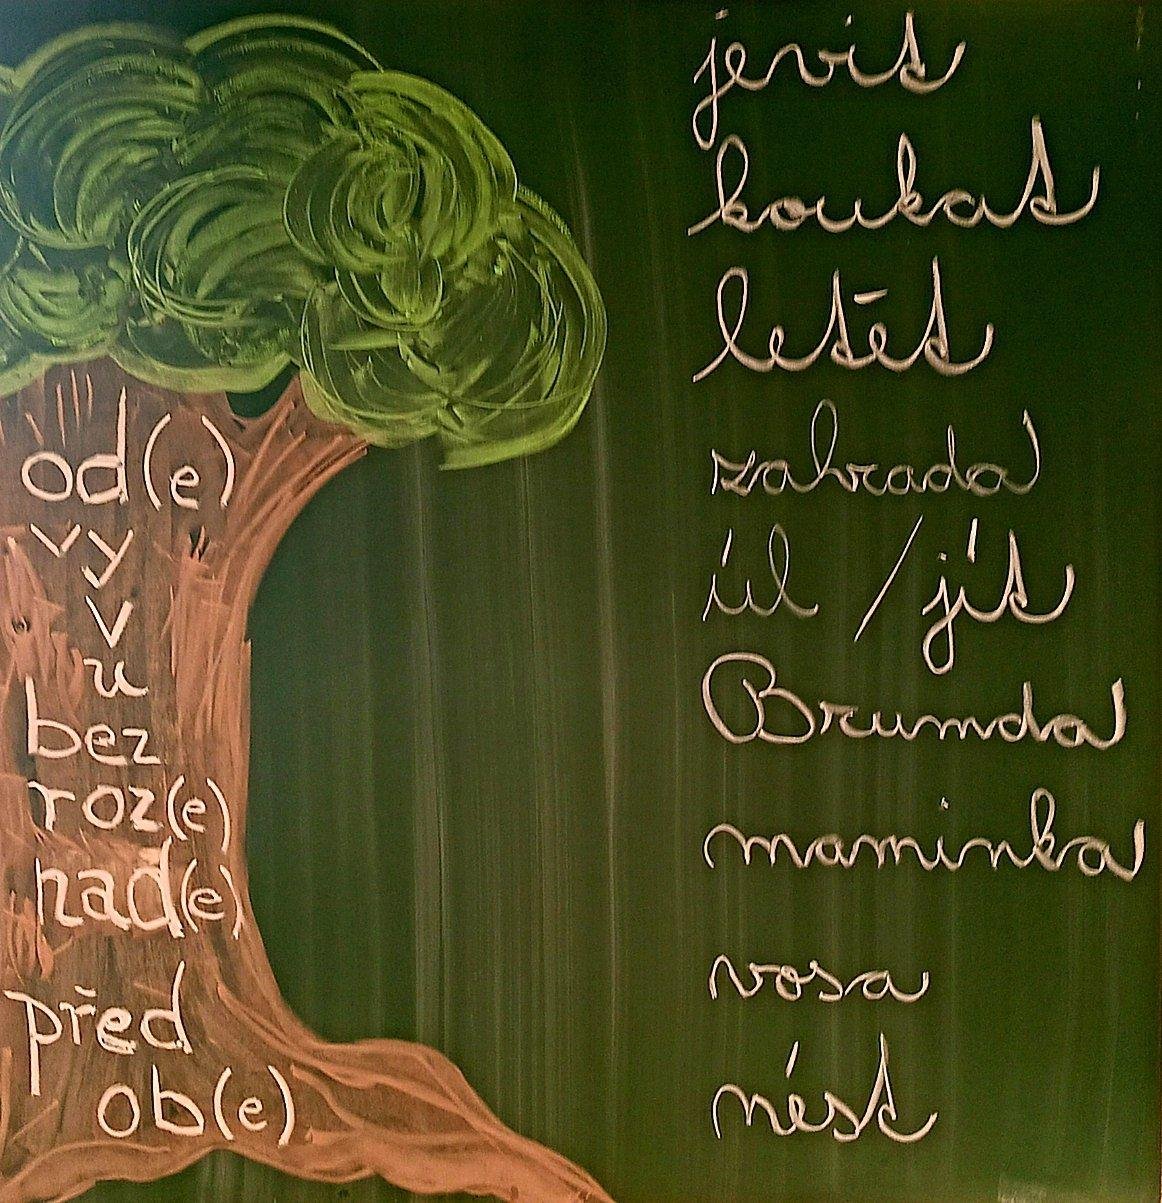 od(e)
vy
v
u
bez
roz(e)
nad(e)
před
ob(e)
jevit
koukat
letět
zahrada
úl / jít
Brumda
maminka
vosa
nést